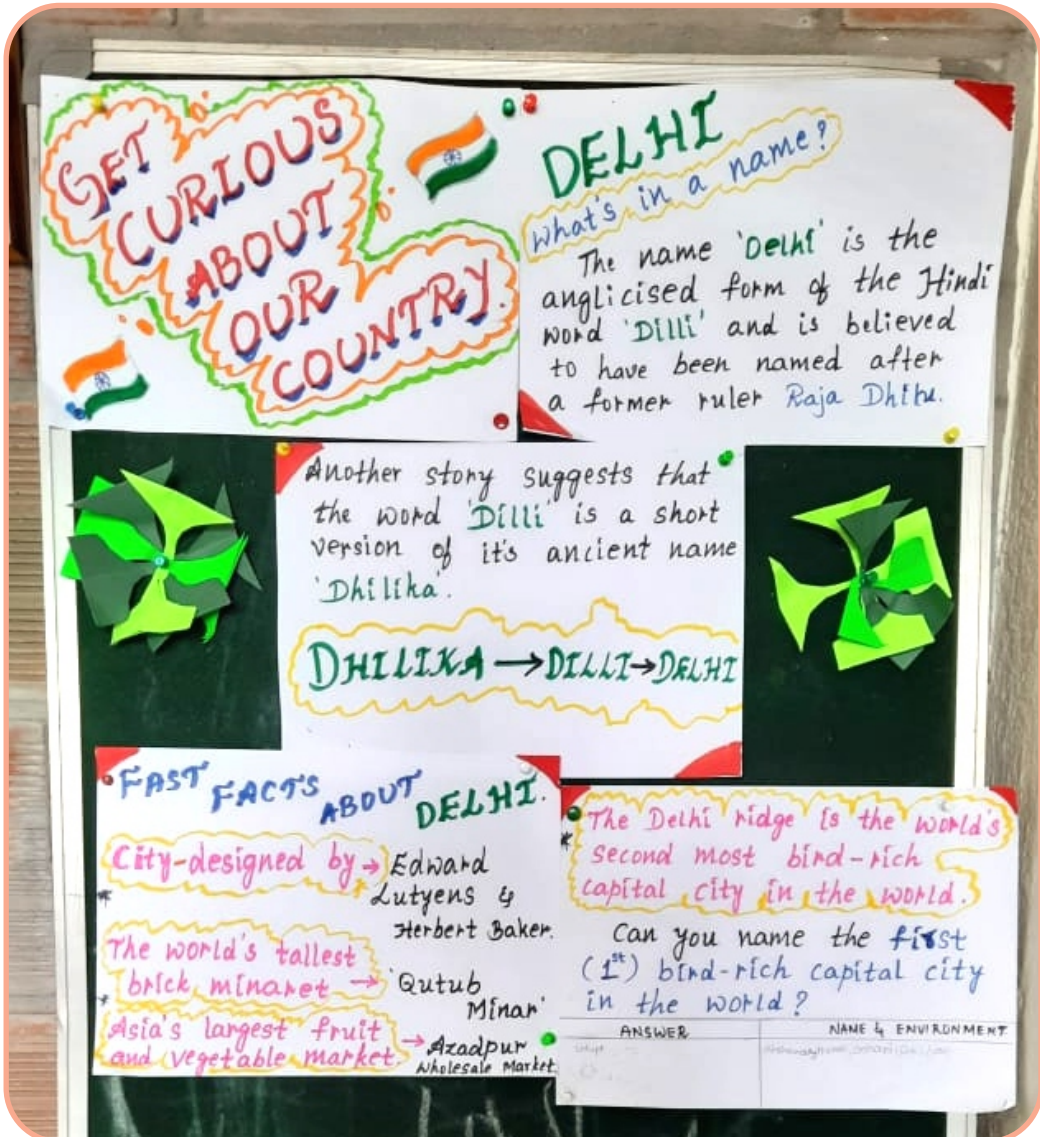 GET
CURIOUS
ABOUT
OUR
COUNTRY.
DELHI
What's in a name?
The name 'Delhi' is the
anglicised form of the Hindi
word 'Dilli' and is believed
to have been named after
a former ruler Raja Dhilu.
Another story suggests that
the word 'Dilli' is a short
version of it's ancient name
'Dhilika'.
DHILIKA → DILLI → DELHI
FAST FACTS ABOUT DELHI.
City-designed by → Edward
Lutyens &
Herbert Baker.
The world's tallest
brick minaret → 'Qutub
Minar'
Asia's largest fruit
and vegetable market. → Azadpur
Wholesale Market.
* The Delhi ridge is the world's
second most bird-rich
capital city in the world.
Can you name the first
(1st) bird-rich capital city
in the world?
ANSWER
NAME & ENVIRONMENT